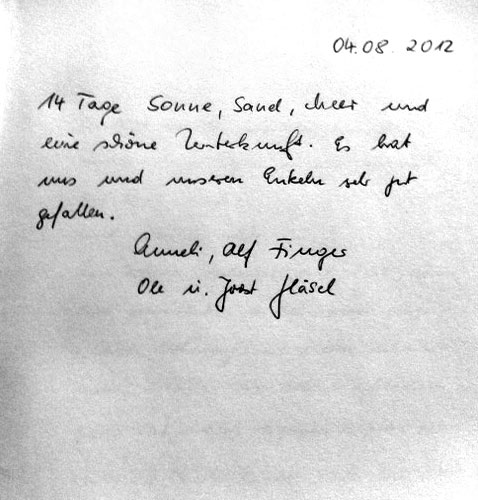 04.08.2012
14 Tage Sonne, Sand, Meer und
eine schöne Unterkunft. Es hat
uns und unseren Enkeln sehr gut
gefallen.
Anneli, Alf Finger
Ole u. Joost Gläsel